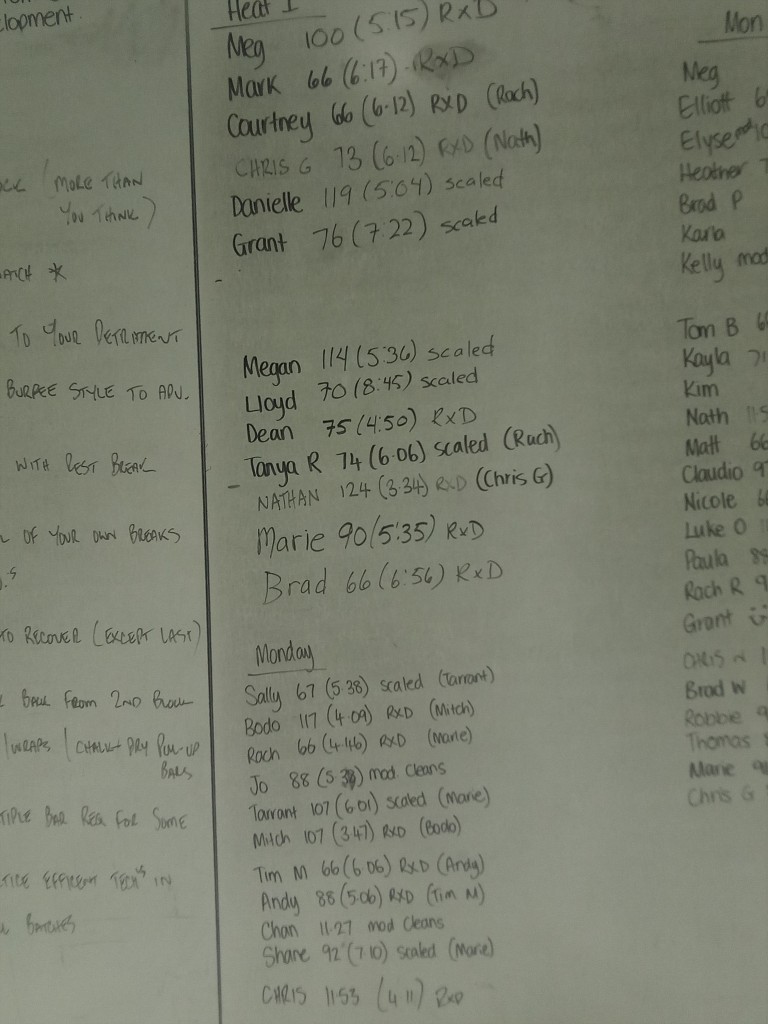 lopment.
(MORE THAN
YOU THINK)
*
TO YOUR DETRIMENT
BURPEE STYLE TO ADV.
WITH REST BREAK
OF YOUR OWN BREAKS
TO RECOVER (EXCEPT LAST)
BACK FROM 2ND BLOCK
/WRAPS / CHALK + DRY PULL-UP
BARS
BAR REQ FOR SOME
EFFICENT TECHS IN
BATCHES
Heat 1
Meg 100 (5:15) RxD
Mark 66 (6:17) RxD
Courtney 66 (6:12) RxD (Rach)
CHRIS G 73 (6:12) RXD (Nath)
Danielle 119 (5:04) scaled
Grant 76 (7:22) scaled
Megan 114 (5:36) scaled
Lloyd 70 (8:45) scaled
Dean 75 (4:50) RxD
Tanya R 74 (6:06) scaled (Rach)
NATHAN 124 (3:34) RxD (Chris G)
Marie 90 (5:35) RxD
Brad 66 (6:56) RxD
Monday
Sally 67 (5:38) scaled (Tarrant)
Bodo 117 (4:09) RxD (Mitch)
Rach 66 (4:46) RXD (Marie)
Jo 88 mod Cleans
Tarrant 107 (6:01) scaled (Marie)
Mitch 107 (3:47) RxD (Bodo)
Tim M 66 (6:06) RxD (Andy)
Andy 88 (5:06) RXD (Tim M)
Chan 11:27 mod Cleans
Shane 92 (7:10) scaled (Marie)
CHRIS 11:53 (4:11) RxD
Mon
Meg
Elliott
Elyse
Heather
Brad P
Karla
Kelly mod
Tom B
Kayla
Kim
Nath
Matt 66
Claudio
Nicole
Luke O
Paula
Rach R
Grant
CHRIS
Brad W
Robbie
Thomas
Marie
Chris G